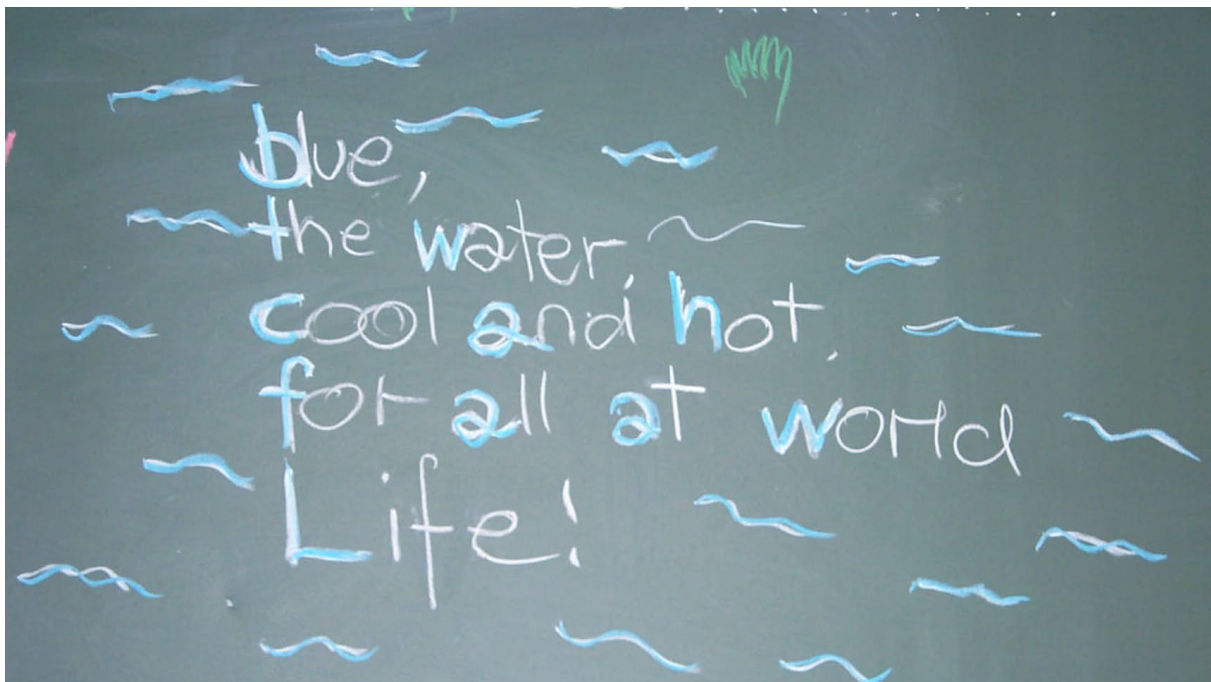 blue,
the water,
cool and hot,
for all at world
Life!